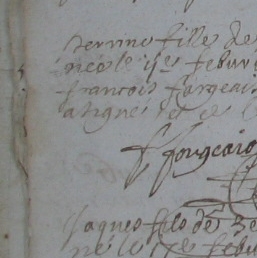 perrine fille de
née le 9e febur
françois fargeais
a signé et ce
f fougeais
Jaques fils de
né le 17e febu